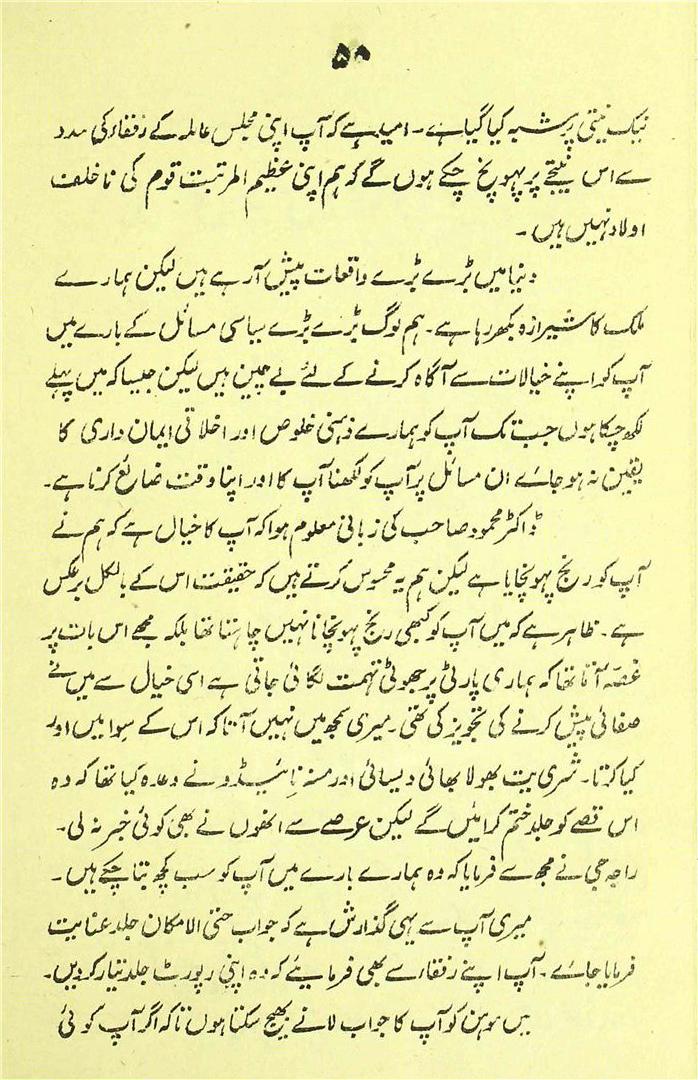 ۵۰
نیک نیتی پر شبہ کیا گیا ہے۔ امید ہے کہ آپ اپنی مجلس عاملہ کے رفقاء کی مدد
سے اس نتیجے پر پہونچ چکے ہوں گے کہ ہم اپنی عظیم المرتبت قوم کی ناخلف
اولاد نہیں ہیں۔
دنیا میں بڑے بڑے واقعات پیش آرہے ہیں لیکن ہمارے
ملک کا شیرازہ بکھر رہا ہے۔ ہم لوگ بڑے بڑے سیاسی مسائل کے بارے میں
آپ کو اپنے خیالات سے آگاہ کرنے کے لئے بے چین ہیں لیکن جیسا کہ میں پہلے
لکھ چکا ہوں جب تک آپ کو ہمارے ذہنی خلوص اور اخلاقی ایمان داری کا
یقین نہ ہو جائے ان مسائل پر آپ کو لکھنا آپ کا اور اپنا وقت ضائع کرنا ہے۔
ڈاکٹر محمود صاحب کی زبانی معلوم ہوا کہ آپ کا خیال ہے کہ ہم نے
آپ کو رنج پہونچایا ہے لیکن ہم یہ محسوس کرتے ہیں کہ حقیقت اس کے بالکل برعکس
ہے۔ ظاہر ہے کہ میں آپ کو کبھی رنج پہونچانا نہیں چاہتا تھا بلکہ مجھے اس بات پر
غصہ آتا تھا کہ ہماری پارٹی پر جھوٹی تہمت لگائی جاتی ہے اسی خیال سے میں نے
صفائی پیش کرنے کی تجویز کی تھی۔ میری سمجھ میں نہیں آتا کہ اس کے سوا میں اور
کیا کرتا۔ شری یت بھولا بھائی دیسائی اور مسز نائیڈو نے وعدہ کیا تھا کہ وہ
اس قصے کو جلد ختم کرائیں گے لیکن عرصے سے انھوں نے بھی کوئی خبر نہ لی۔
راجہ جی نے مجھ سے فرمایا کہ وہ ہمارے بارے میں آپ کو سب کچھ بتا چکے ہیں۔
میری آپ سے یہی گذارش ہے کہ جواب حتی الامکان جلد عنایت
فرمایا جائے۔ آپ اپنے رفقاء سے بھی فرمایئے کہ وہ اپنی رپورٹ جلد تیار کر دیں۔
میں موہن کو آپ کا جواب لانے بھیج سکتا ہوں تاکہ اگر آپ کوئی